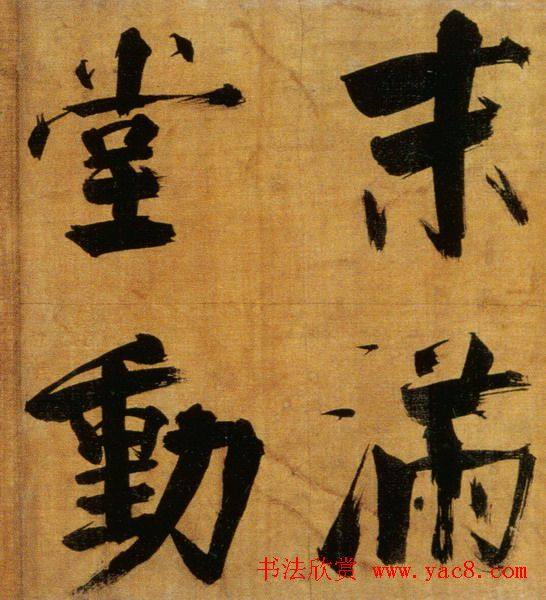 末滿
堂動
书法欣赏 www.yac8.com